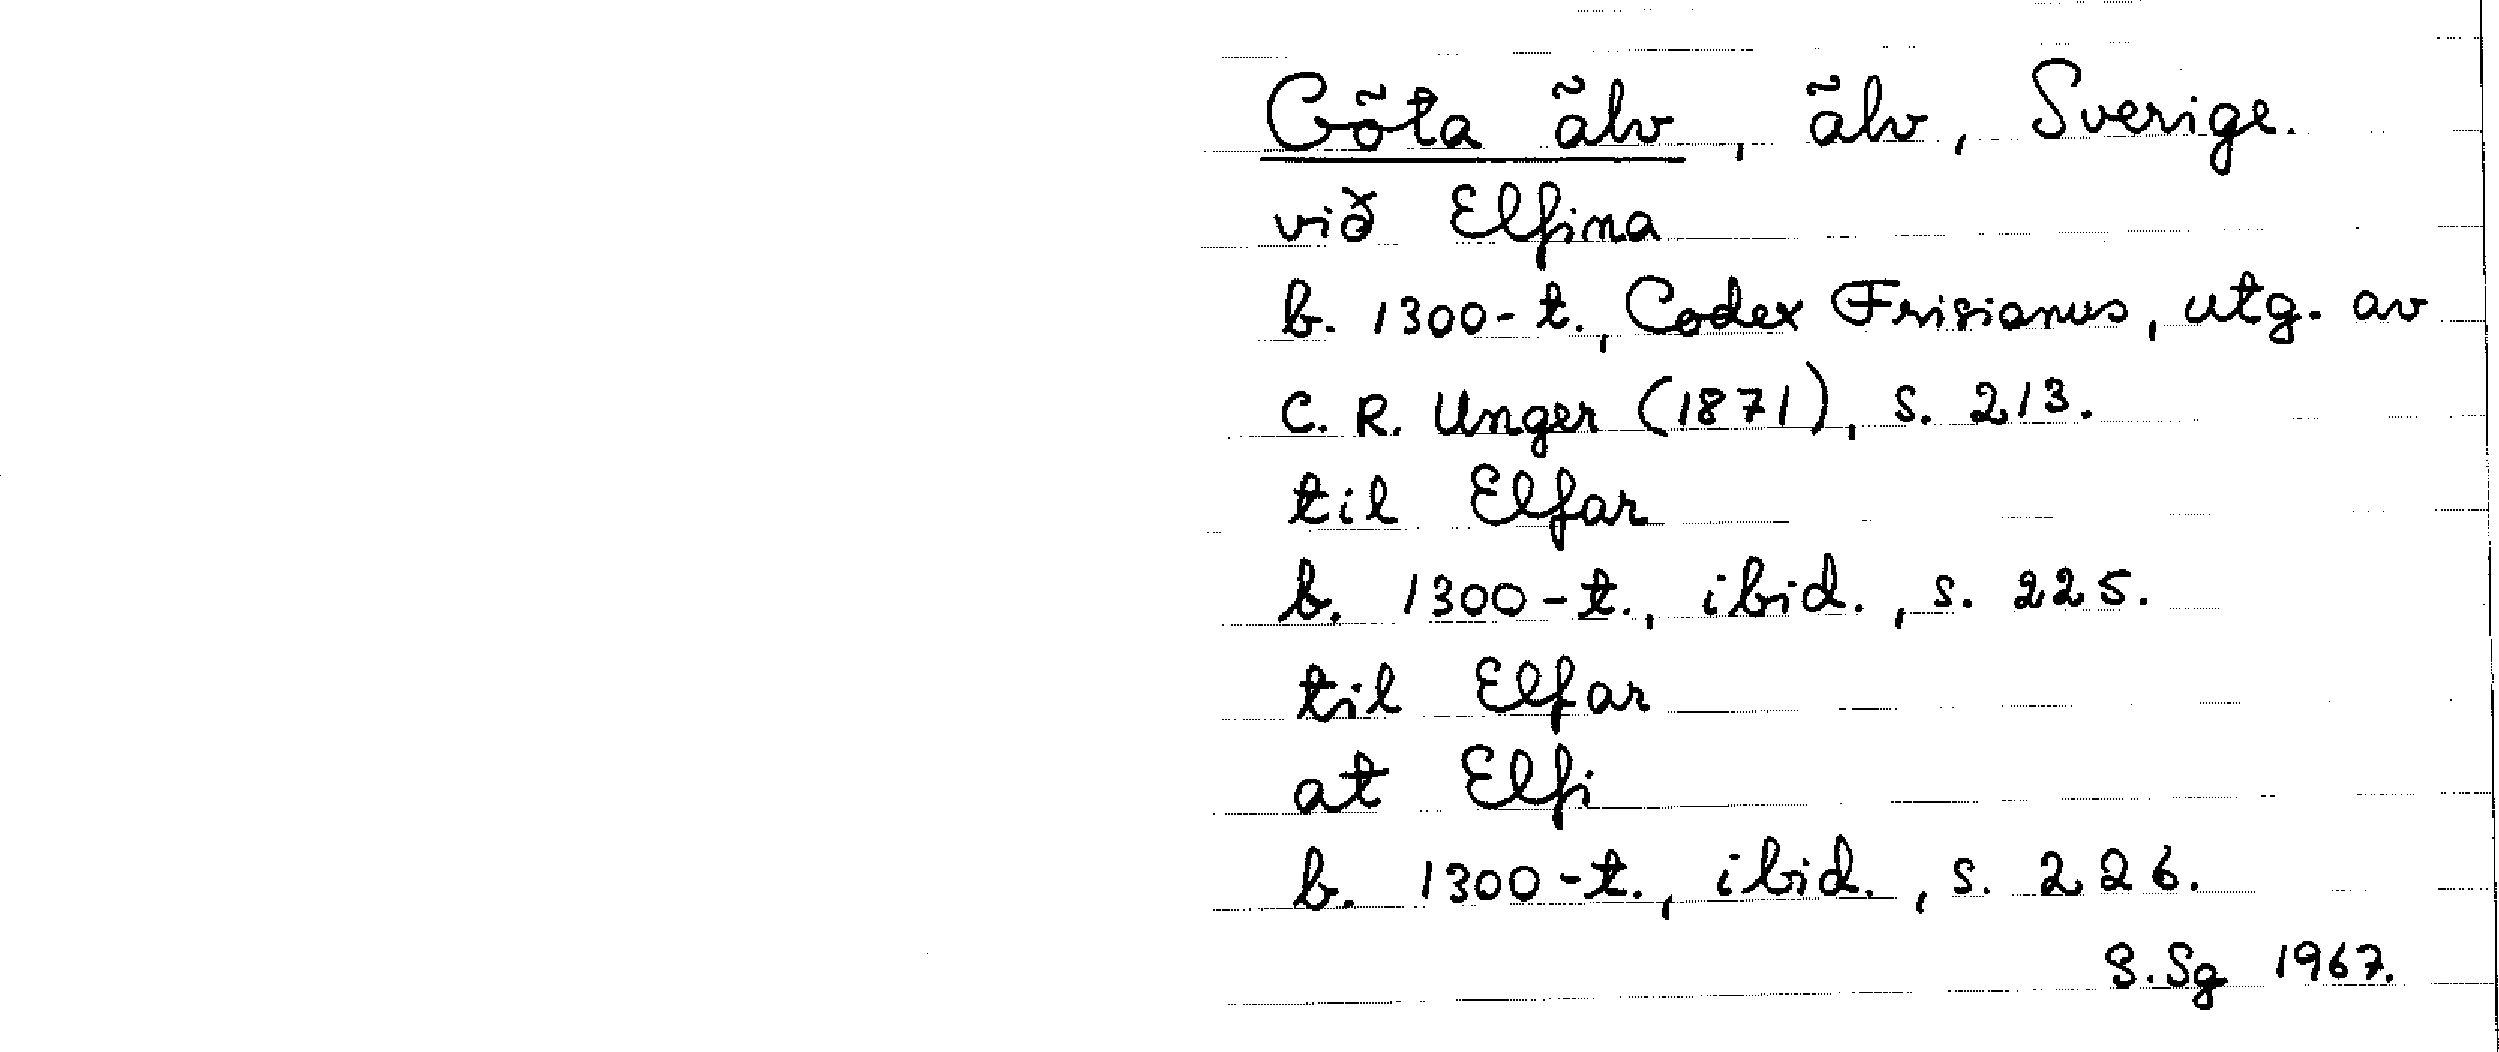 Göta älv, älv, Sverige.
við Elfina
b. 1300-t., Codex Frisianus, utg. av
C. R. Unger (1871), s. 213.
til Elfar
b. 1300-t., ibid., s. 225.
til Elfar
at Elfi
b. 1300-t., ibid., s. 226.
S. Sg 1967.